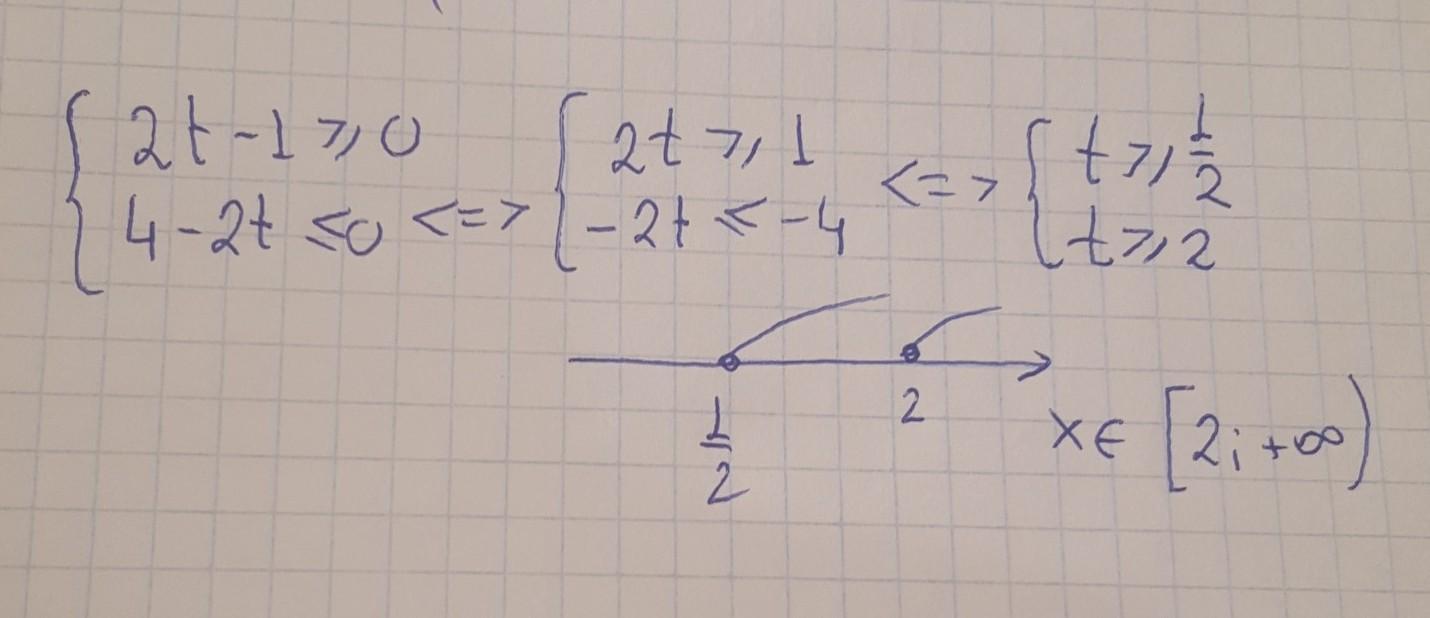 { 2t - 1 ⩾ 0
4 - 2t ≤ 0 <=> { 2t ⩾ 1
-2t ≤ -4 <=> { t ⩾ 1/2
t ⩾ 2
1/2 2
x ∈ [2; +∞)